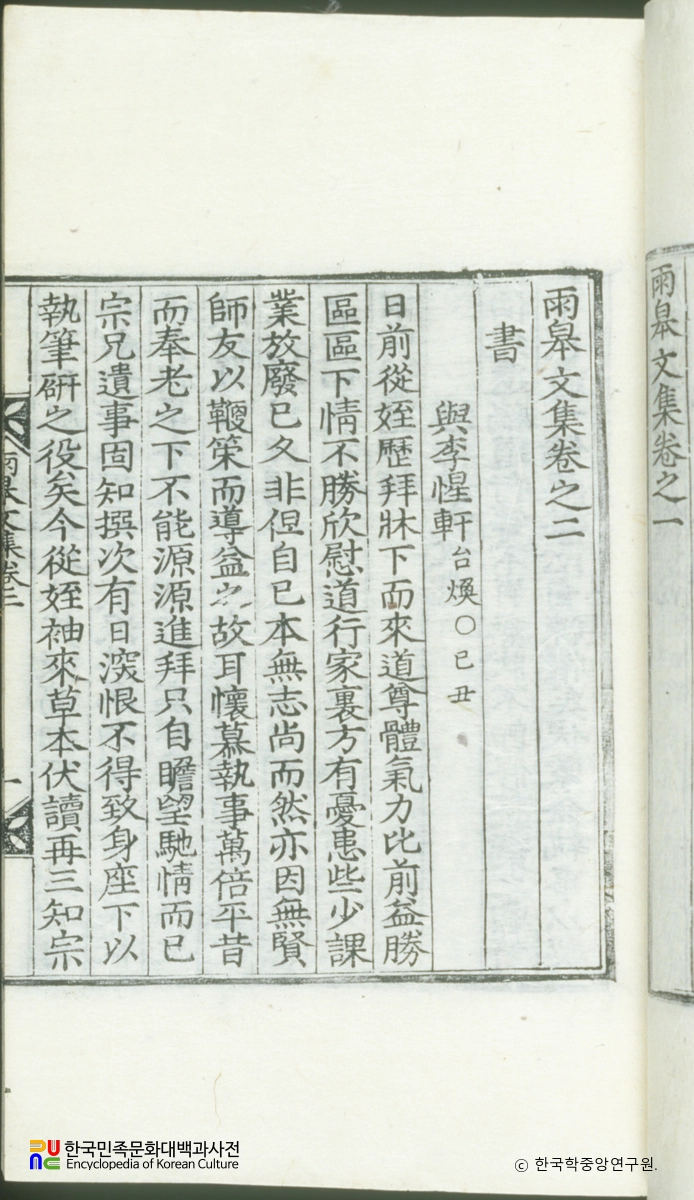 雨皐文集卷之一
雨皐文集卷之二
書
與李惺軒台煥○己丑
日前從姪歷拜牀下而來道尊體氣力比前益勝
區區下情不勝欣慰道行家裏方有憂患些少課
業放廢已久非但自己本無志尚而然亦因無賢
師友以鞭策而導益之故耳懷慕執事萬倍平昔
而奉老之下不能源源進拜只自瞻望馳情而已
宗兄遺事固知撰次有日深恨不得致身座下以
執筆硏之役矣今從姪袖來草本伏讀再三知宗
雨皐文集卷二
一
한국민족문화대백과사전
Encyclopedia of Korean Culture
ⓒ 한국학중앙연구원.